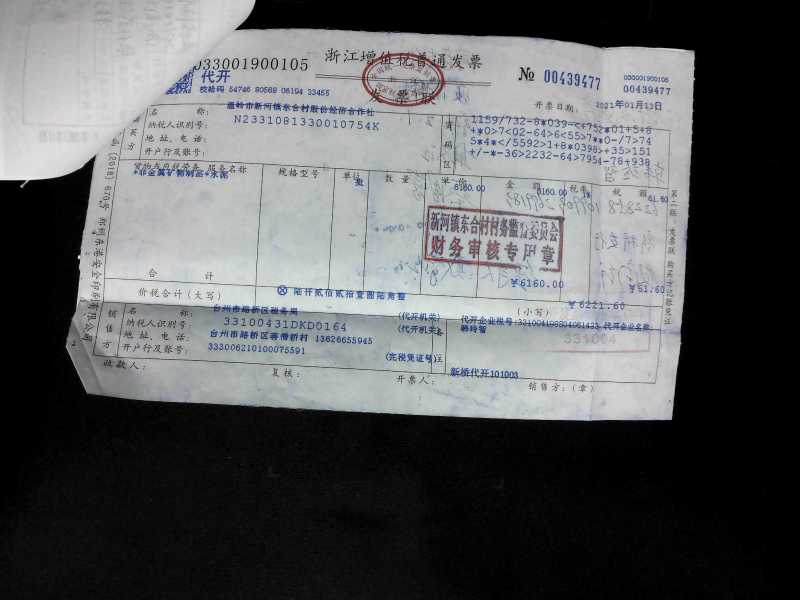 033001900105
浙江增值税普通发票
№ 00439477
033001900105
00439477
代开
校验码 54746 80568 06194 33455
发票联
开票日期: 2021年01月13日
购买方
名 称: 温岭市新河镇东合村股份经济合作社
纳税人识别号: N2331081330010754K
地址、电话:
开户行及账号:
密码区
1159/732-8*039-<+752*01+5+8
+*0>7<02-64>6<55>7**0-/7>74
5*4*</5592>1+8*0398>+35>151
+/-*-36>2232-64>7954-78+938
货物或应税劳务、服务名称 规格型号 单位 数量 单价 金额 税率 税额
*非金属矿物制品*水泥 6160.00 6160.00 1% 61.60
新河镇东合村村务监督委员会
财务审核专用章
合 计 ¥6160.00 ¥61.60
价税合计(大写) ⊗陆仟贰佰贰拾壹圆陆角整 (小写) ¥6221.60
销售方
名 称: 台州市路桥区税务局 (代开机关)
纳税人识别号: 33100431DKD0164 (代开机关)
地址、电话: 台州市路桥区善滑新村 13626655945
开户行及账号: 333006210100075591 (完税凭证号)
备注
代开企业名称:
新桥代开101003
收款人: 复核: 开票人: 销售方:(章)
第二联:发票联 购买方记账凭证